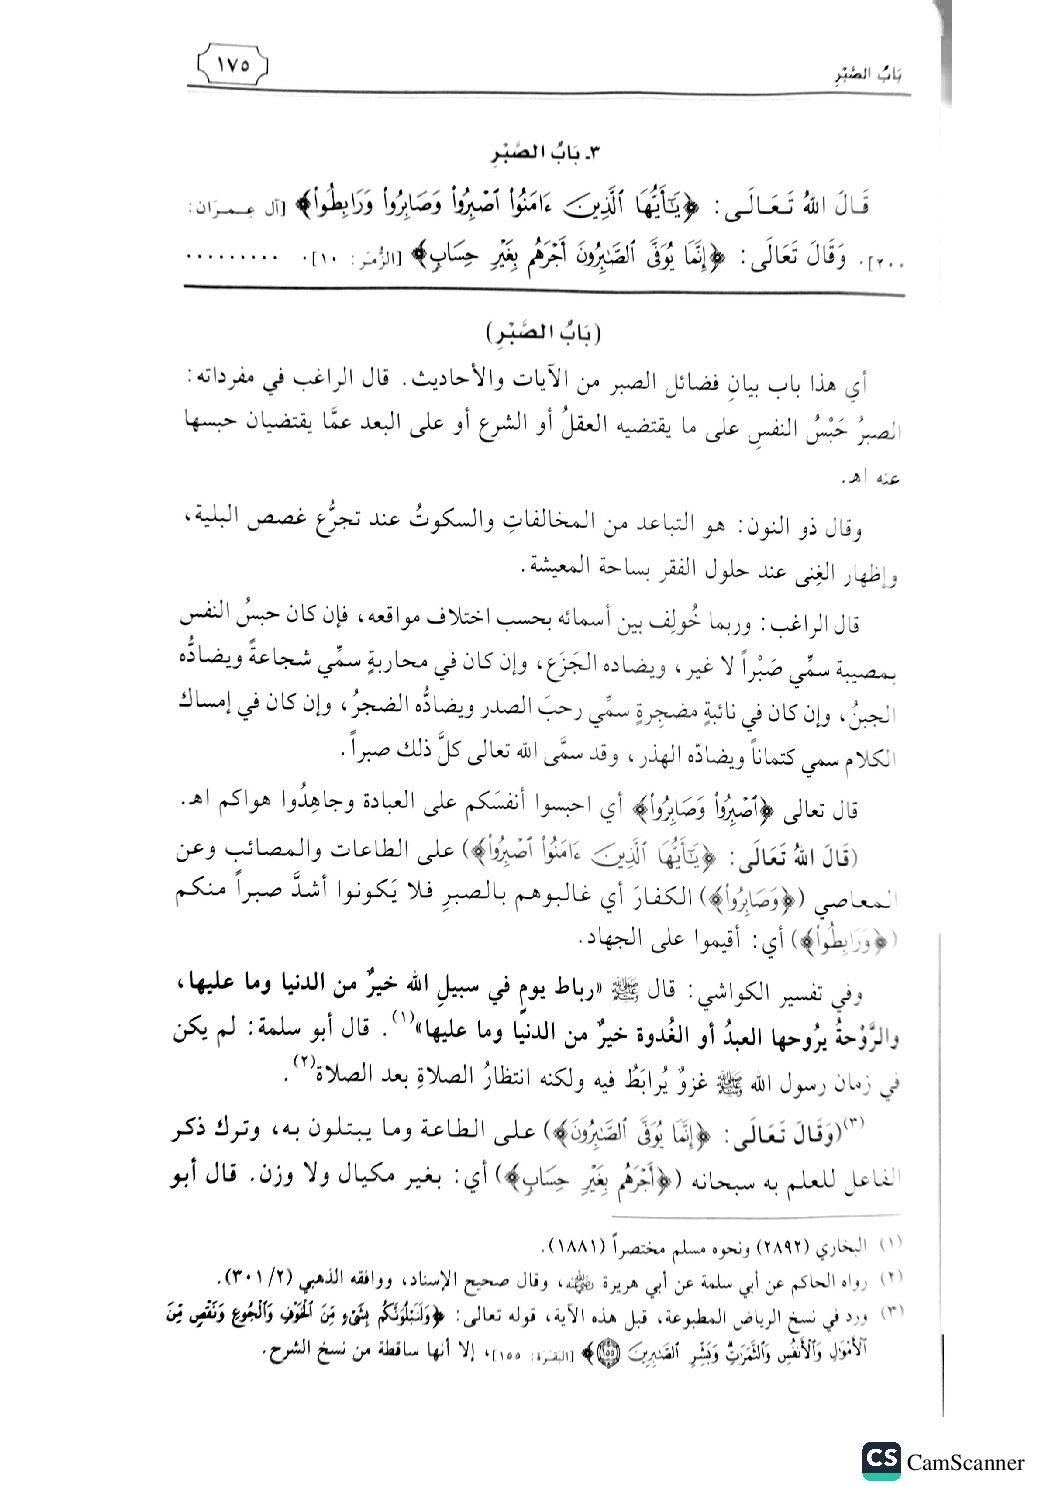 بَابُ الصَّبْرِ
١٧٥
٣ـ بَابُ الصَّبْرِ
قَالَ اللهُ تَعَالَى: ﴿يَٰٓأَيُّهَا ٱلَّذِينَ ءَامَنُوا۟ ٱصْبِرُوا۟ وَصَابِرُوا۟ وَرَابِطُوا۟﴾ [آل عِمرَان:
٢٠٠]. وَقَالَ تَعَالَى: ﴿إِنَّمَا يُوَفَّى ٱلصَّٰبِرُونَ أَجْرَهُم بِغَيْرِ حِسَابٍ﴾ [الزُّمَر: ١٠]. .........
(بَابُ الصَّبْرِ)
أي هذا باب بيانِ فضائل الصبر من الآيات والأحاديث. قال الراغب في مفرداته:
الصبرُ حَبْسُ النفسِ على ما يقتضيه العقلُ أو الشرع أو على البعد عمَّا يقتضيان حبسها
عنه اهـ.
وقال ذو النون: هو التباعد من المخالفاتِ والسكوتُ عند تجرُّع غصص البلية،
وإظهار الغِنى عند حلول الفقر بساحة المعيشة.
قال الراغب: وربما خُولِف بين أسمائه بحسب اختلاف مواقعه، فإن كان حبسُ النفس
بمصيبة سمِّي صَبْراً لا غير، ويضاده الجَزَع، وإن كان في محاربةٍ سمِّي شجاعةً ويضادُّه
الجبنُ، وإن كان في نائبةٍ مضجِرةٍ سمِّي رحبَ الصدر ويضادُّه الضجرُ، وإن كان في إمساك
الكلام سمي كتماناً ويضادّه الهذر، وقد سمَّى الله تعالى كلَّ ذلك صبراً.
قال تعالى ﴿ٱصْبِرُوا۟ وَصَابِرُوا۟﴾ أي احبسوا أنفسَكم على العبادة وجاهِدُوا هواكم اهـ.
(قَالَ اللهُ تَعَالَى: ﴿يَٰٓأَيُّهَا ٱلَّذِينَ ءَامَنُوا۟ ٱصْبِرُوا۟﴾) على الطاعات والمصائب وعن
المعاصي (﴿وَصَابِرُوا۟﴾) الكفارَ أي غالبوهم بالصبرِ فلا يَكونوا أشدَّ صبراً منكم
(﴿وَرَابِطُوا۟﴾) أي: أقيموا على الجهاد.
وفي تفسير الكواشي: قال ﷺ «رباط يومٍ في سبيلِ الله خيرٌ من الدنيا وما عليها،
والرَّوْحةُ يرُوحها العبدُ أو الغُدوة خيرٌ من الدنيا وما عليها»(١). قال أبو سلمة: لم يكن
في زمان رسول الله ﷺ غزوٌ يُرابَطُ فيه ولكنه انتظارُ الصلاةِ بعد الصلاة(٢).
(٣)(وَقَالَ تَعَالَى: ﴿إِنَّمَا يُوَفَّى ٱلصَّٰبِرُونَ﴾) على الطاعة وما يبتلون به، وترك ذكر
الفاعل للعلم به سبحانه (﴿أَجْرَهُم بِغَيْرِ حِسَابٍ﴾) أي: بغير مكيال ولا وزن. قال أبو
(١) البخاري (٢٨٩٢) ونحوه مسلم مختصراً (١٨٨١).
(٢) رواه الحاكم عن أبي سلمة عن أبي هريرة رضي الله عنه، وقال صحيح الإسناد، ووافقه الذهبي (٣٠١/٢).
(٣) ورد في نسخ الرياض المطبوعة، قبل هذه الآية، قوله تعالى: ﴿وَلَنَبْلُوَنَّكُم بِشَىْءٍ مِّنَ ٱلْخَوْفِ وَٱلْجُوعِ وَنَقْصٍ مِّنَ
ٱلْأَمْوَٰلِ وَٱلْأَنفُسِ وَٱلثَّمَرَٰتِ وَبَشِّرِ ٱلصَّٰبِرِينَ ١٥٥﴾ [البقرة: ١٥٥]، إلا أنها ساقطة من نسخ الشرح.
CS CamScanner